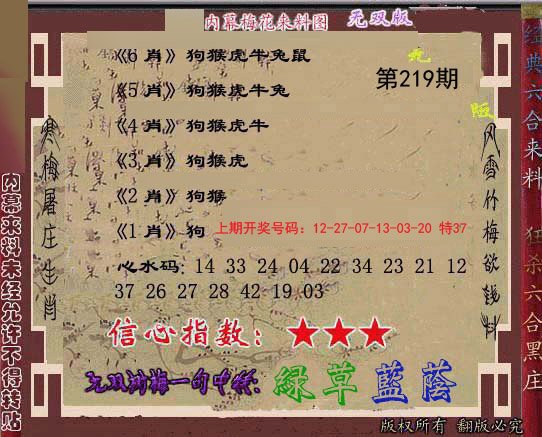 内幕梅花来料图 无双版
《6 肖》狗猴虎牛兔鼠
第219期
《5 肖》狗猴虎牛兔
《4 肖》狗猴虎牛
《3 肖》狗猴虎
《2 肖》狗猴
《1 肖》狗
上期开奖号码：12-27-07-13-03-20 特37
心水码: 14 33 24 04 22 34 23 21 12
37 26 27 28 42 19 03
信心指数：★★★
绿草蓝荫
版权所有 翻版必究
寒梅屠庄生肖
风雪竹梅欲钱料
内幕来料未经允许不得转贴
经典六合来料
狂杀六合黑庄